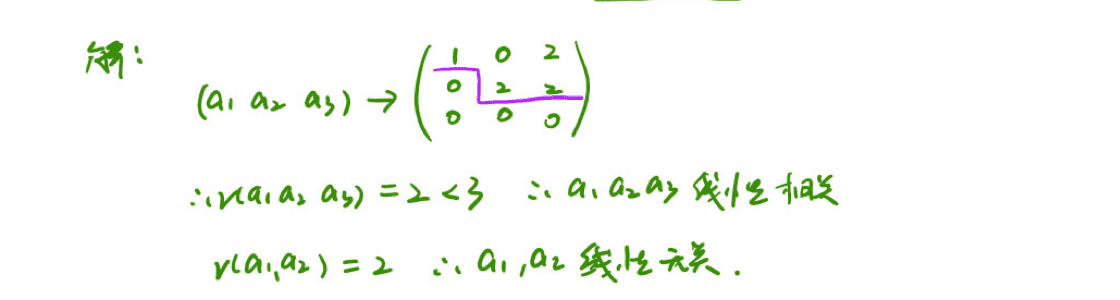 解:
(a₁ a₂ a₃) → ( 1 0 2
0 2 2
0 0 0 )
∴ r(a₁ a₂ a₃) = 2 < 3 ∴ a₁ a₂ a₃ 线性相关
r(a₁,a₂) = 2 ∴ a₁,a₂ 线性无关.